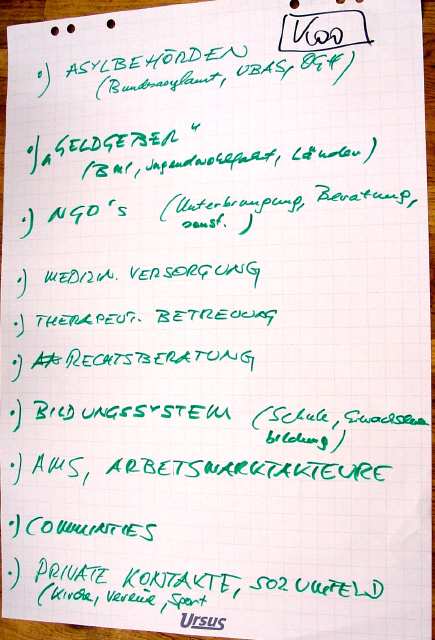 •) ASYLBEHÖRDEN
(Bundesasylamt, UBAS, VGH)
•) „GELDGEBER"
(BMI, Jugendwohlfahrt, Länder)
•) NGO's (Unterbringung, Beratung,
sonst.)
•) MEDIZIN. VERSORGUNG
•) THERAPEUT. BETREUUNG
•) RECHTSBERATUNG
•) BILDUNGSSYSTEM (Schule, Erwachsenen
bildung)
•) AMS, ARBEITSMARKTAKTEURE
•) COMMUNITIES
•) PRIVATE KONTAKTE, SOZ UMFELD
(Kirche, Vereine, Sport
Ursus